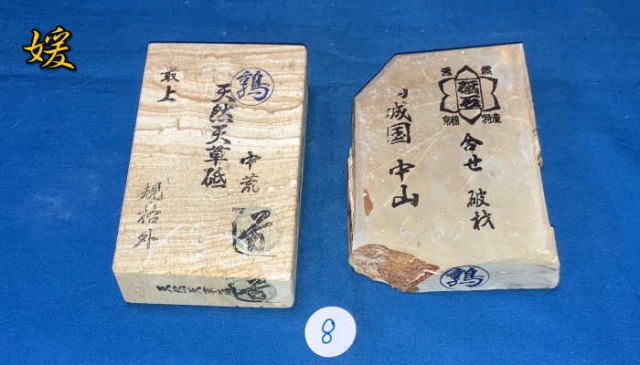 媛
鶉
天然天草砥
中荒
最上
規格外
天然
砥石
京都
特産
合せ
破材
山城国
中山
鶉
8